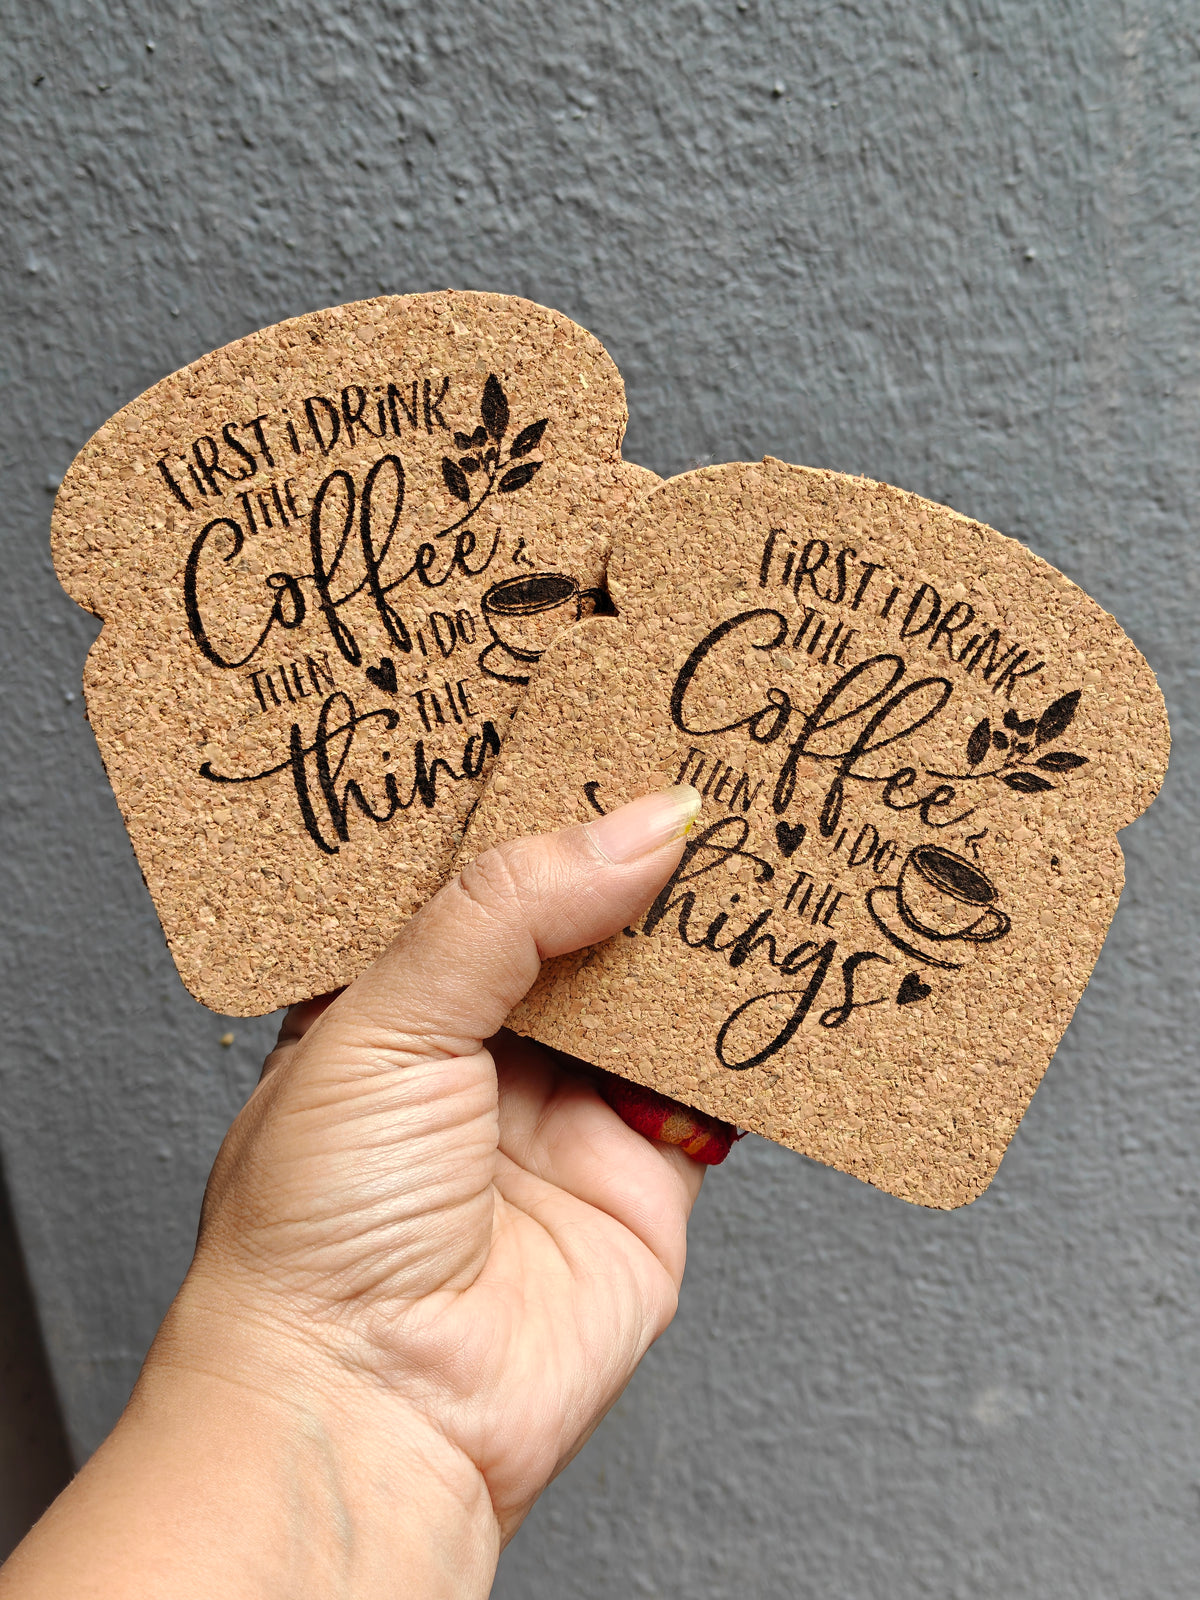 FiRST i DRiNK
THE
Coffee
THEN i DO
THE
things
FiRST i DRiNK
THE
Coffee
THEN i DO
THE
things